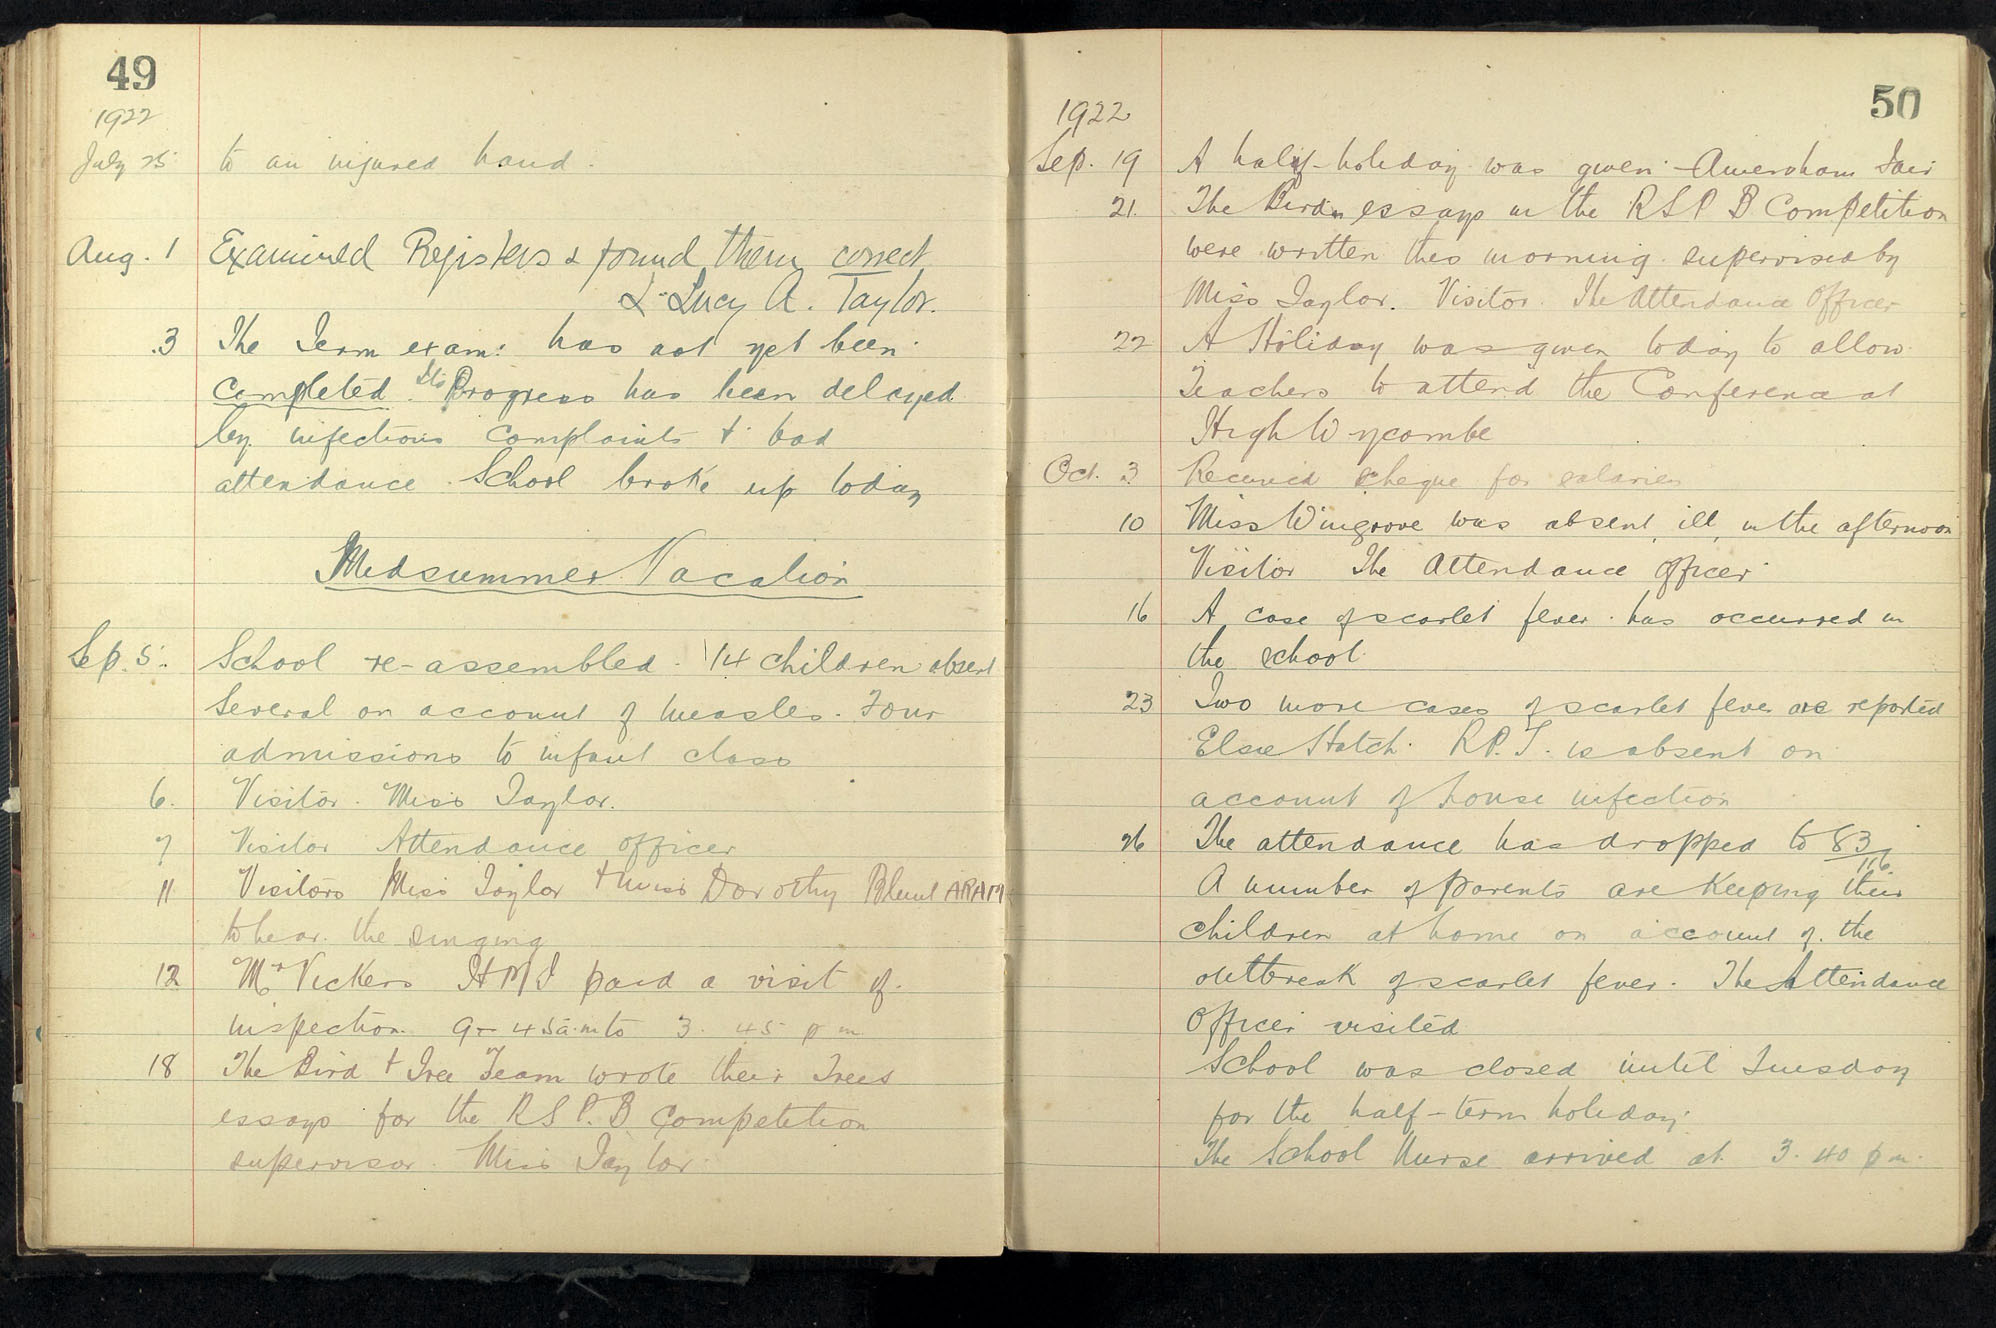 49
1922
July 25 to an injured hand.
Aug. 1 Examined Registers & found them correct
Lucy A. Taylor.
3 The Term exam: has not yet been
completed. Its Progress has been delayed
by infectious complaints & bad
attendance. School broke up today
Midsummer Vacation
Sep. 5. School re-assembled. 14 children absent
Several on account of measles. Four
admissions to infant class
6. Visitor. Miss Taylor.
7 Visitor Attendance officer
11 Visitors Miss Taylor & Miss Dorothy Blunt ARAM
to hear the singing
12 Mr Vickers HMI paid a visit of
inspection. 9-45 a.m to 3.45 p m
18 The Bird & Tree Team wrote their Trees
essays for the RSP.B Competition
supervisor. Miss Taylor
50
1922
Sep. 19 A half-holiday was given - Amersham Fair
21. The Bird essays in the RSPB Competition
were written this morning supervised by
Miss Taylor. Visitor. The Attendance Officer
22 A Holiday was given today to allow
Teachers to attend the Conference at
High Wycombe
Oct. 3 Received cheque for salaries
10 Miss Wingrove was absent, ill, in the afternoon
Visitor The Attendance Officer
16 A case of scarlet fever has occurred in
the school
23 Two more cases of scarlet fever are reported
Elsie Hatch. R.P.T. is absent on
account of house infection
26 The attendance has dropped to 83/116
A number of parents are keeping their
children at home on account of the
outbreak of scarlet fever. The Attendance
Officer visited
School was closed until Tuesday
for the half-term holiday.
The School Nurse arrived at 3.40 p m.